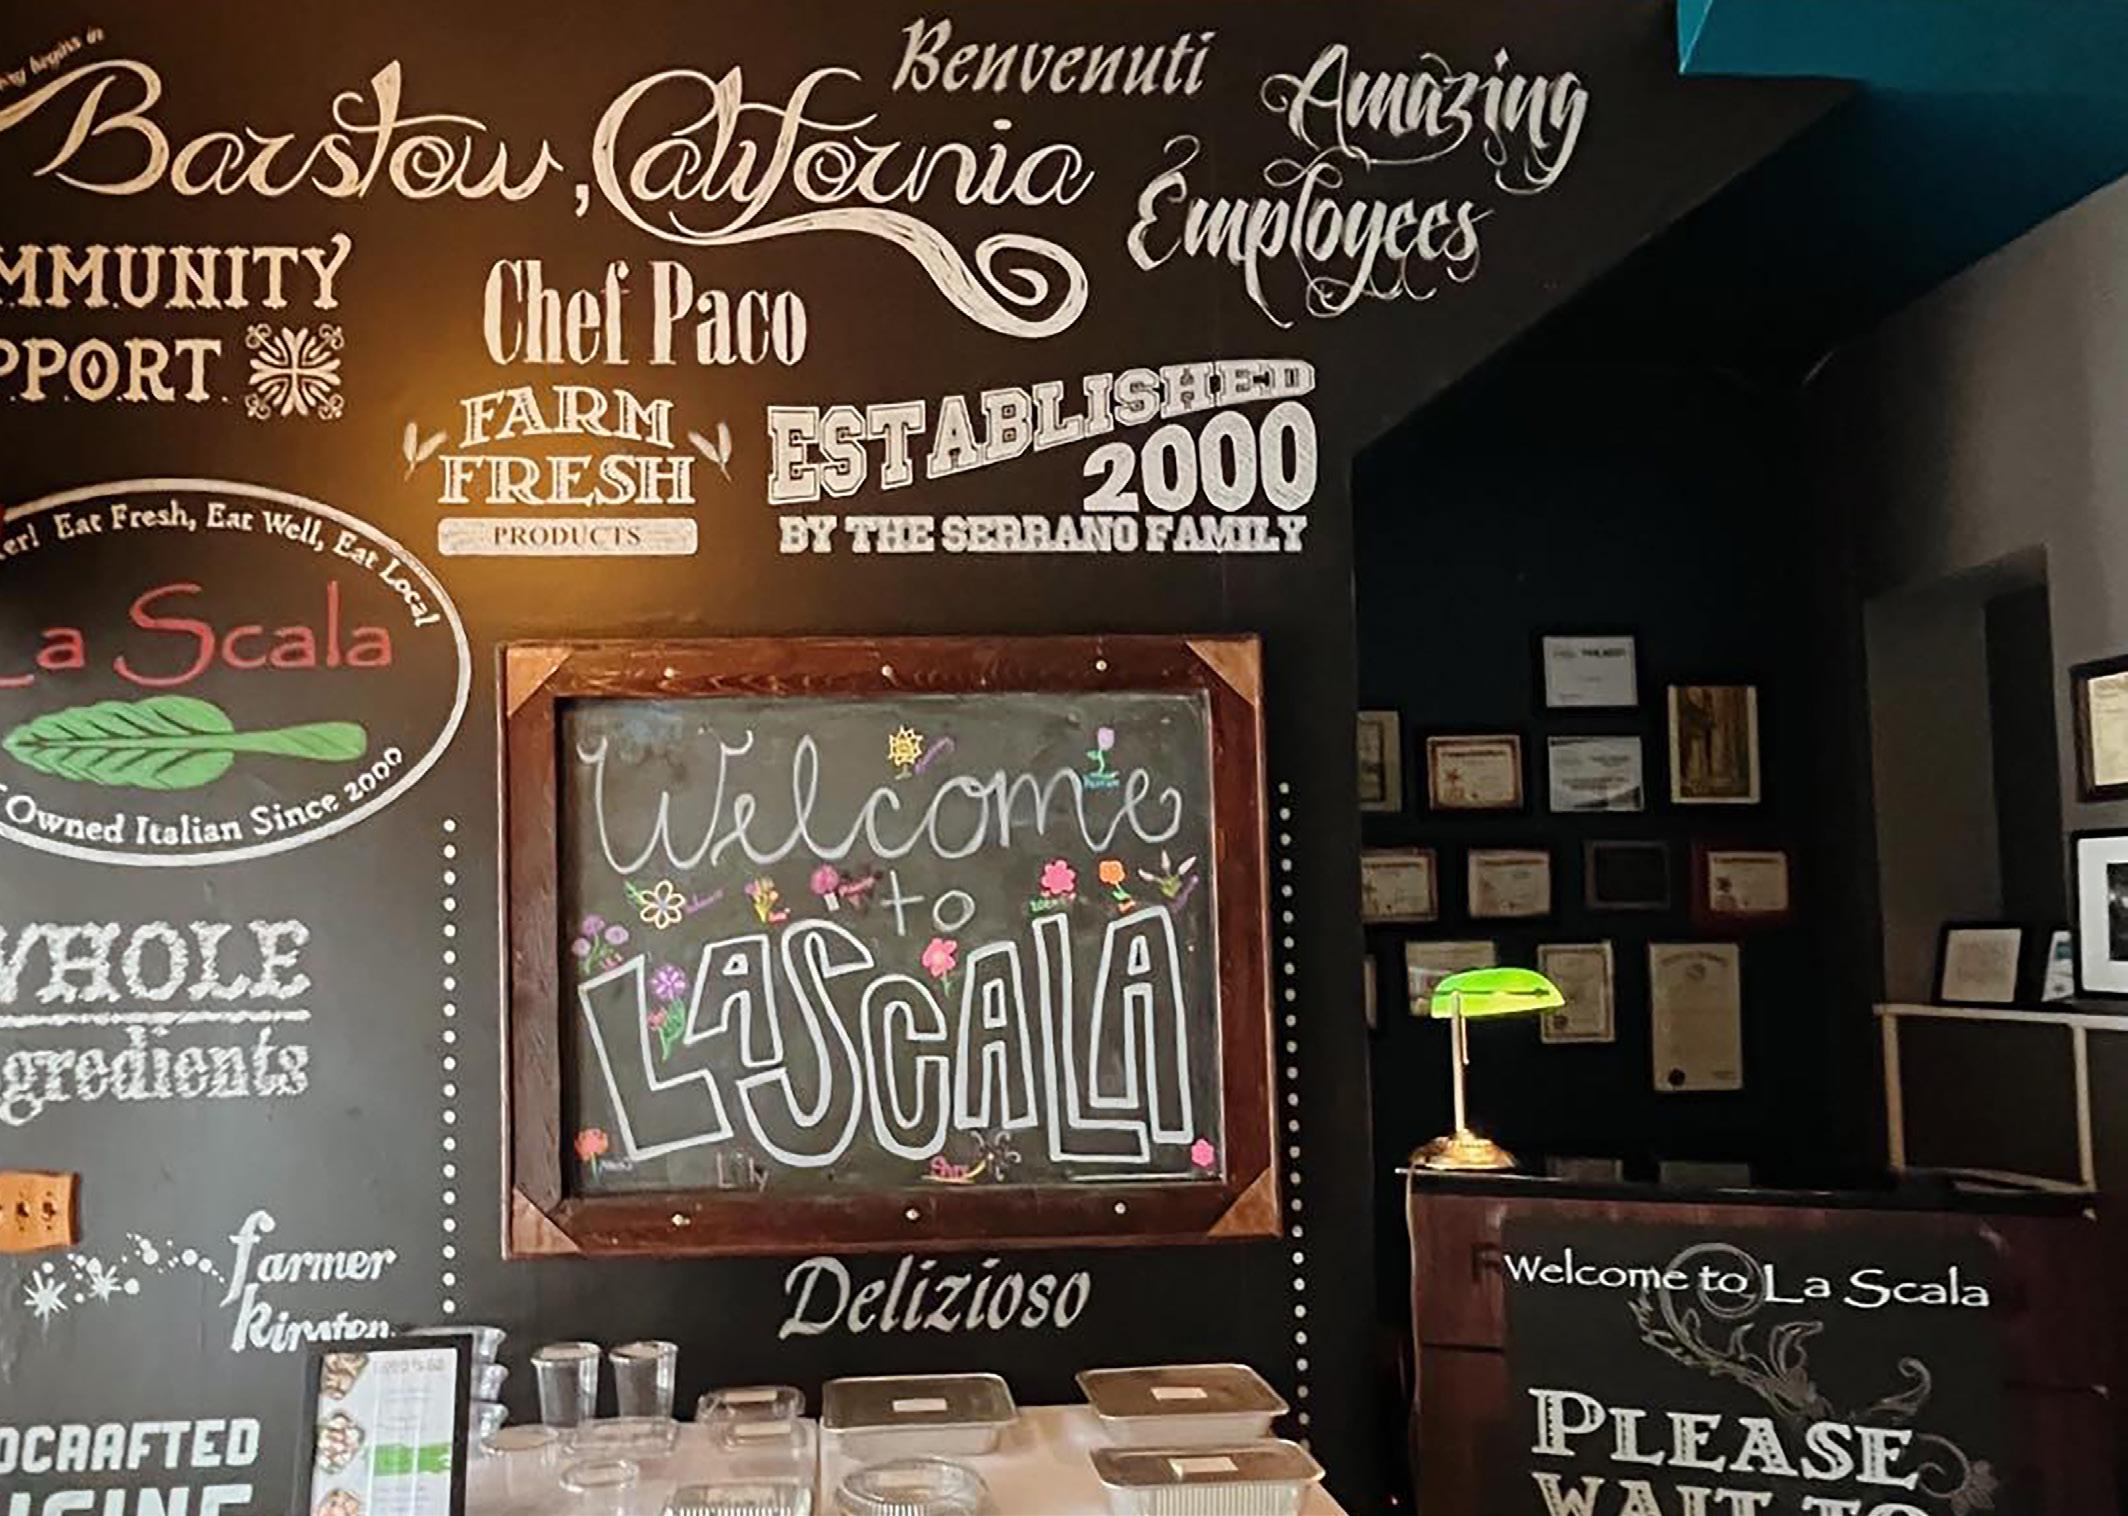 begins in
Barstow, California
Benvenuti
Amazing
Employees
MMUNITY
PPORT
Chef Paco
FARM
FRESH
PRODUCTS
ESTABLISHED
2000
BY THE SERRANO FAMILY
er! Eat Fresh, Eat Well, Eat Local
La Scala
Owned Italian Since 2000
Welcome
to
LASCALA
Lily
WHOLE
gredients
farmer
kirsten
Delizioso
OCRAFTED
Welcome to La Scala
PLEASE
WAIT TO